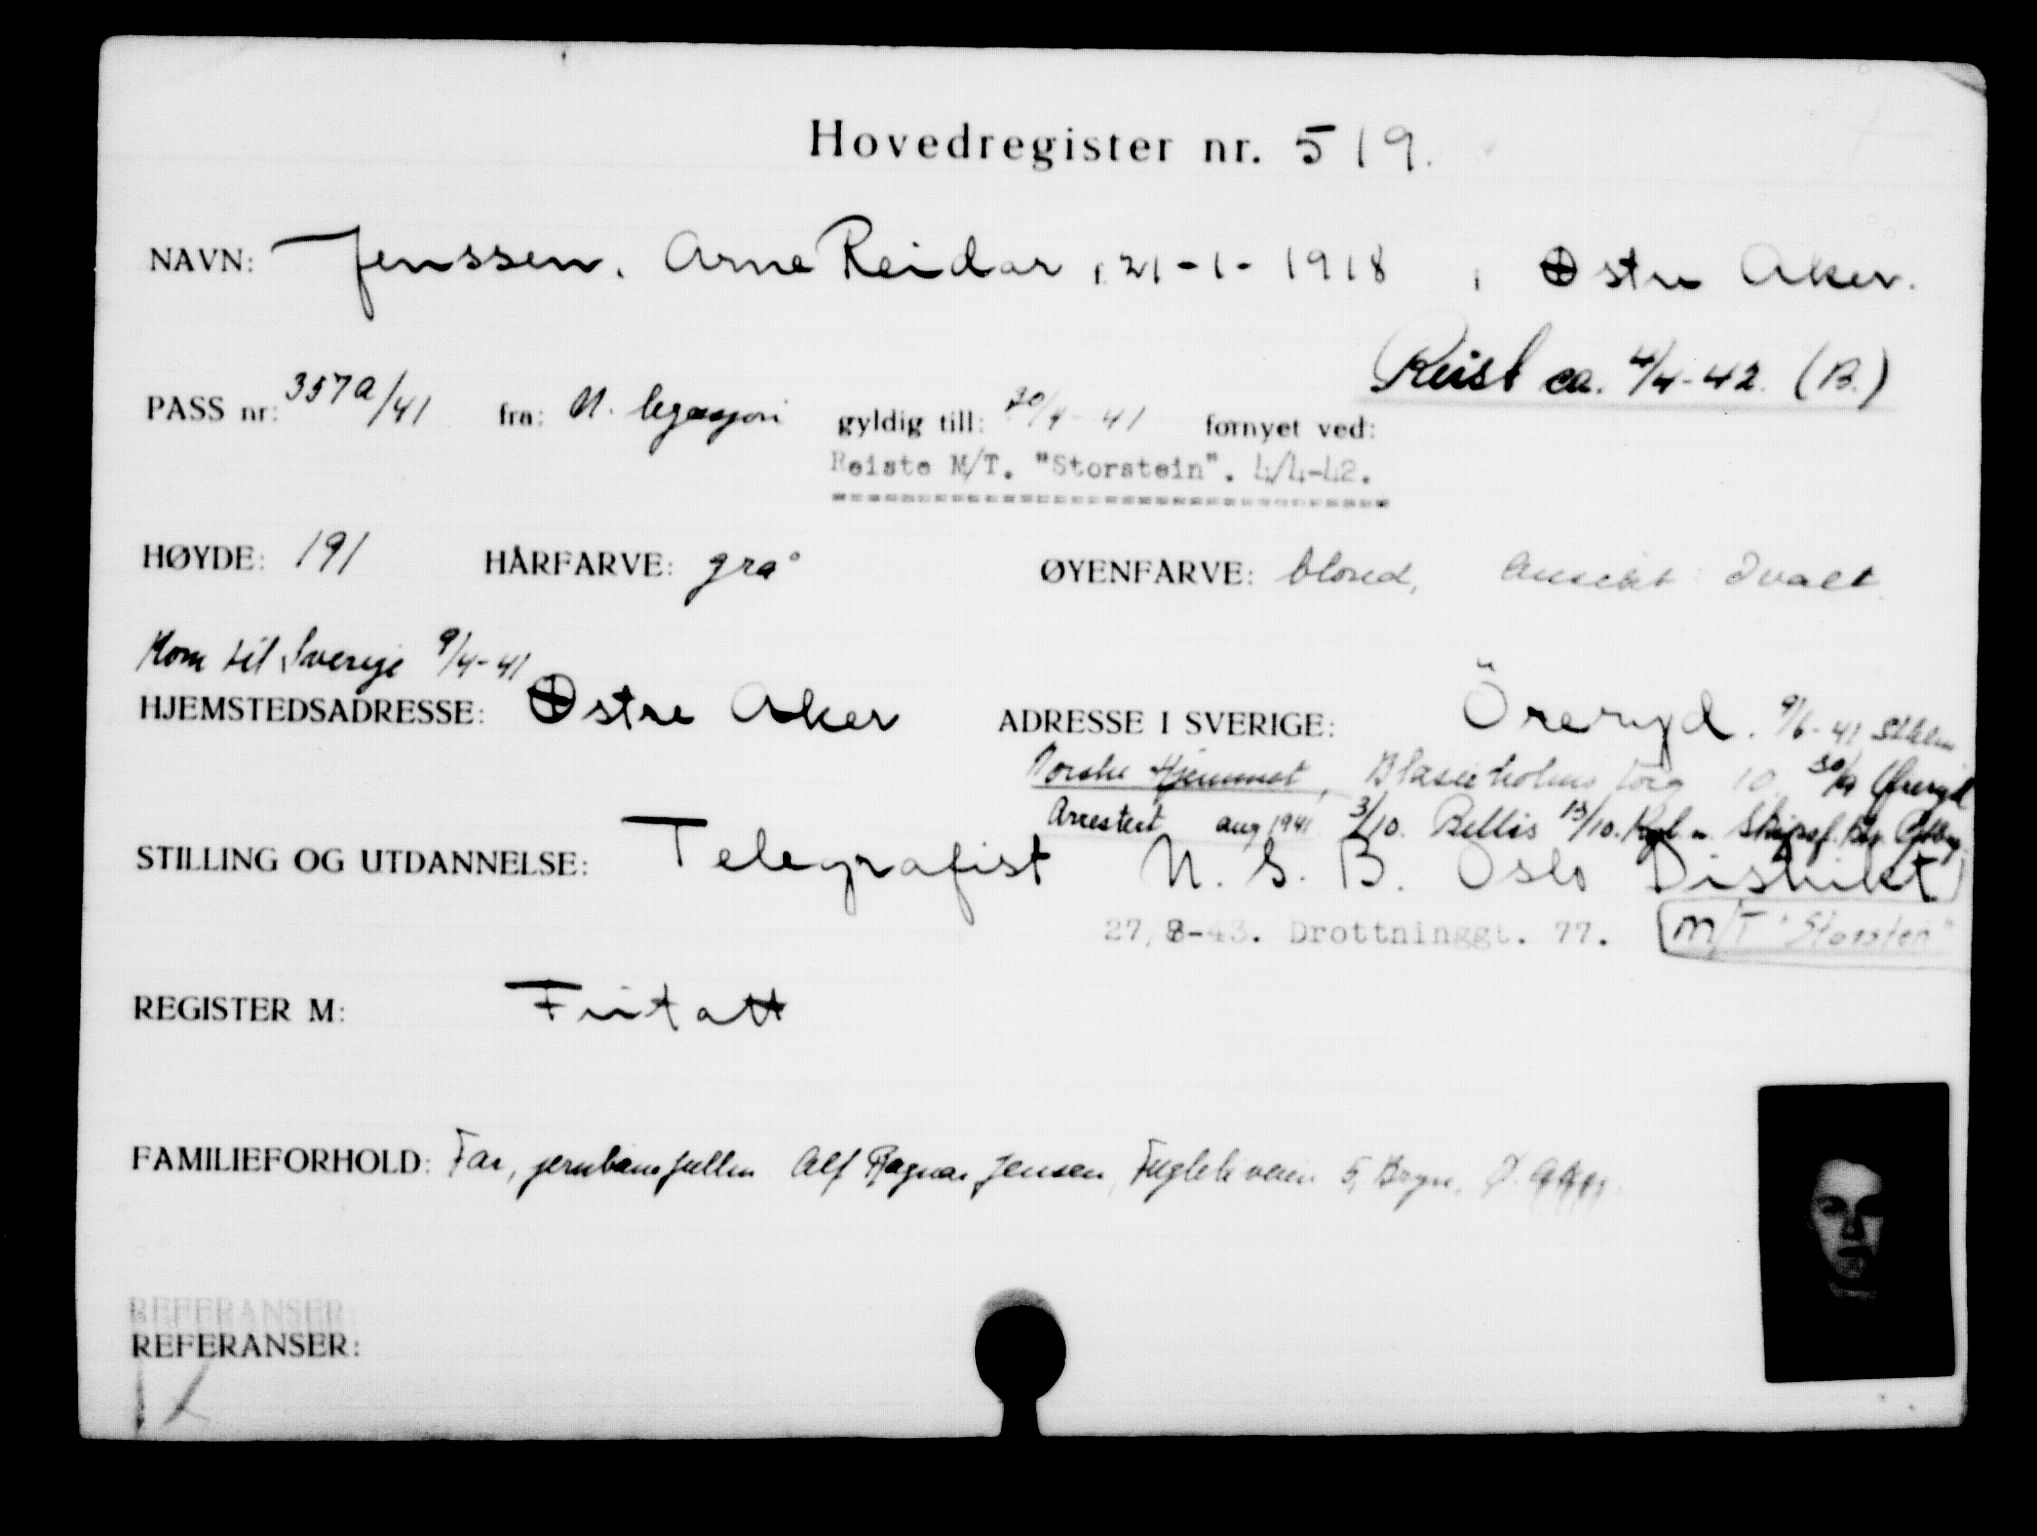 Hovedregister nr. 519.
NAVN: Jenssen. Arne Reidar, 21-1-1918, Østre Aker.
Reist ca. 4/4-42. (B.)
PASS nr: 357a/41 fra: N. legasjon gyldig till: 20/4-41 fornyet ved:
Reiste M/T. "Storstein". 4/4-42.
HØYDE: 191 HÅRFARVE: grå ØYENFARVE: blond, Ansikt: Ovalt.
Kom til Sverige 9/4-41
HJEMSTEDSADRESSE: Østre Aker ADRESSE I SVERIGE: Öreryd. 9/6-41 Sthlm
Norske Hjemmet, Blasieholms torg 10 30/9 Øreryd
Arrestert aug 1941 3/10. Rellis 13/10.
STILLING OG UTDANNELSE: Telegrafist N. S. B. Oslo Distrikt
27/8-43. Drottninggt. 77. M/T "Storsten"
REGISTER M: Fritatt
FAMILIEFORHOLD: Far, Alf Ragnar Jensen, Fugleliveien 5, Bryn, Ø. Aker.
REFERANSER:
REFERANSER: